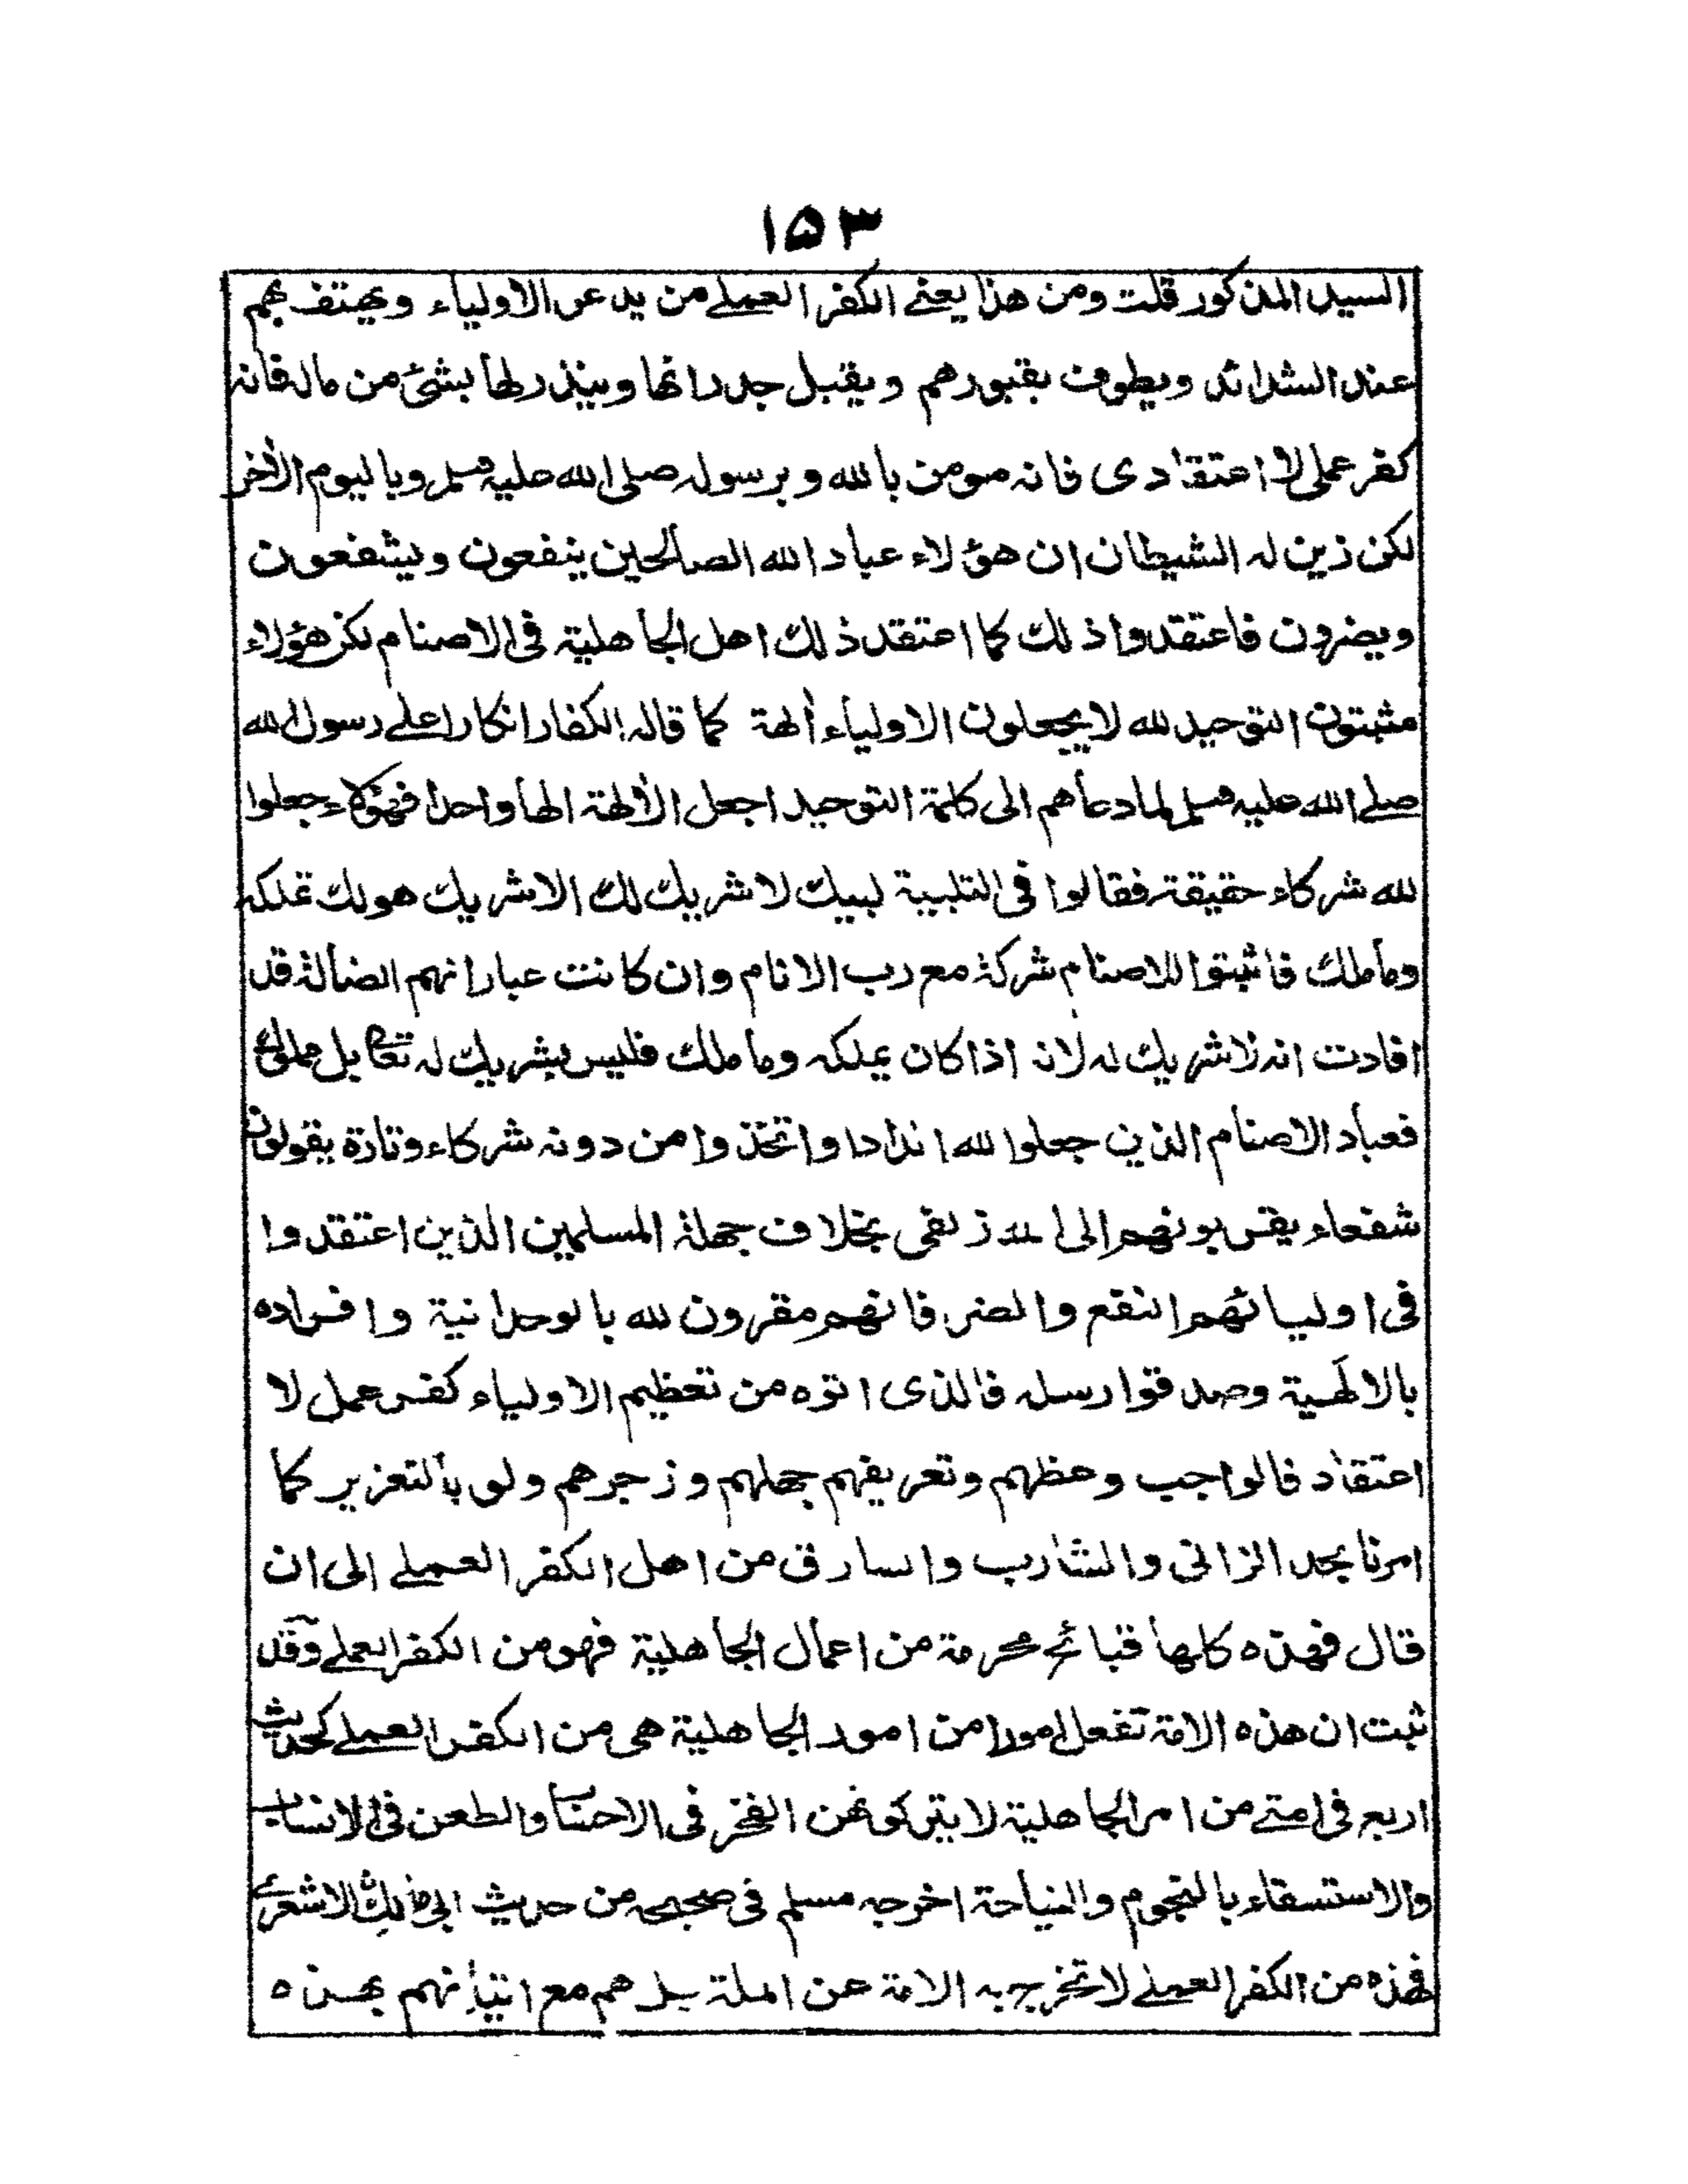 ١٥٣
السيد المذكور قلت ومن هذا يعنے الكفر العملے من يدعو الاولياء ويهتف بهم
عند الشدائد ويطوف بقبورهم ويقبل جدراتها وينذر لها بشئ من ماله فانه
كفر عملی لا اعتقادی فانه مومن بالله وبرسوله صلی الله عليه وسلم وباليوم الأخر
لكن زين له الشيطان ان هؤلاء عباد الله الصالحين ينفعون ويشفعون
ويضرون فاعتقدوا ذلك كما اعتقد ذلك اهل الجاهلية فی الاصنام لكن هؤلاء
مثبتون التوحيد لله لا يجعلون الاولياء ألهة كما قاله الكفار انكارا علے رسول الله
صلے الله عليه وسلم لما دعاهم الی كلمة التوحيد اجعل الألهة الها واحدا فهؤلاء جعلوا
لله شركاء حقيقة فقالوا فی التلبية لبيك لا شريك لك الا شريك هو لك تملكه
وما ملك فاثبتوا للاصنام شركة مع رب الانام وان كانت عباراتهم الضالة قد
افادت انه لا شريك له لانه اذا كان يملكه وما ملك فليس بشريك له تعالی بل مملوك
فعباد الاصنام الذين جعلوا لله اندادا واتخذوا من دونه شركاء وتارة يقولون
شفعاء يقربونهم الی الله زلفی بخلاف جهلة المسلمين الذين اعتقدوا
فی اوليائهم النفع والضر فانهم مقرون لله بالوحدانية وافراده
بالالهية وصدقوا رسله فالذی اتوه من تعظيم الاولياء كفر عمل لا
اعتقاد فالواجب وعظهم وتعريفهم جهلهم وزجرهم ولو بالتعزير كما
امرنا بحد الزانی والشارب والسارق من اهل الكفر العملے الی ان
قال فهذه كلها قبائح محرمة من اعمال الجاهلية فهو من الكفر العملے وقد
ثبت ان هذه الامة تفعل امورا من امور الجاهلية هی من الكفر العملے كحديث
اربع فی امتے من امر الجاهلية لا يتركونهن الفخر فی الاحساب والطعن فی الانساب
والاستسقاء بالنجوم والنياحة اخرجه مسلم فی صحيحه من حديث ابی مالك الاشعری
فهذه من الكفر العملے لا تخرج به الامة عن الملة بل هم مع اتيانهم بهذه